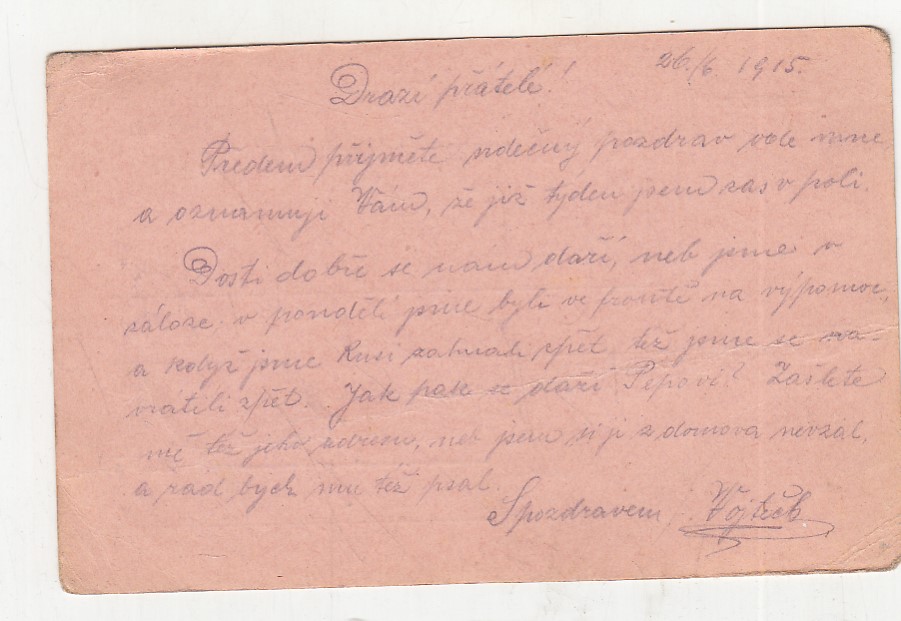 26./6 1915.
Drazí přátelé!
Předem přijměte srdečný pozdrav ode mne
a oznamuji Vám, že již týden jsem zas v poli.
Dosti dobře se nám daří, neb jsme v
záloze. v pondělí jsme byli ve frontě na výpomoc,
a když jsme Rusi zahnali zpět též jsme se na-
vrátili zpět. Jak pak se daří Pepovi? Zašlete
mě též jeho adresu, neb jsem si ji z domova nevzal,
a rád bych mu též psal.
S pozdravem Vojtěch